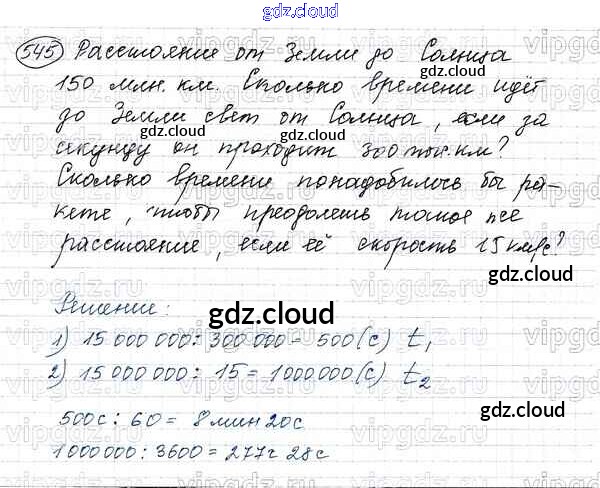 gdz.cloud
545 Расстояние от Земли до Солнца
150 млн. км. Сколько времени идёт
до Земли свет от Солнца, если за
секунду он проходит 300 тыс. км?
Сколько времени понадобилось бы ра-
кете, чтобы преодолеть такое же
расстояние, если её скорость 15 км/с?
Решение:
gdz.cloud
1) 15 000 000 : 300 000 = 500 (с) t₁
2) 15 000 000 : 15 = 1000000 (с) t₂
500с : 60 = 8 мин 20с
1000000 : 3600 = 277ч 28с
gdz.cloud